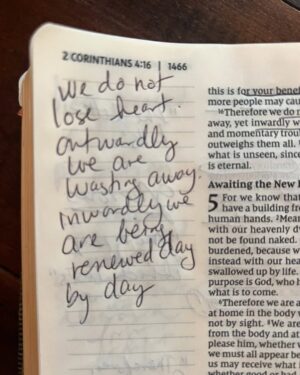 2 CORINTHIANS 4:16 | 1466
we do not
lose heart.
outwardly
we are
wasting away.
inwardly we
are being
renewed day
by day
this is for your benef
more people may cau
16Therefore we do n
away, yet inwardly w
and momentary trou
outweighs them all.
what is unseen, since
is eternal.
Awaiting the New
5 For we know that
have a building fr
human hands. 2Mean
with our heavenly d
not be found naked.
burdened, because w
instead with our hea
swallowed up by life.
purpose is God, who h
what is to come.
6Therefore we are a
at home in the body w
not by sight. 8We are
from the body and at
please him, whether w
we must all appear be
us may receive what i
whether good or bad